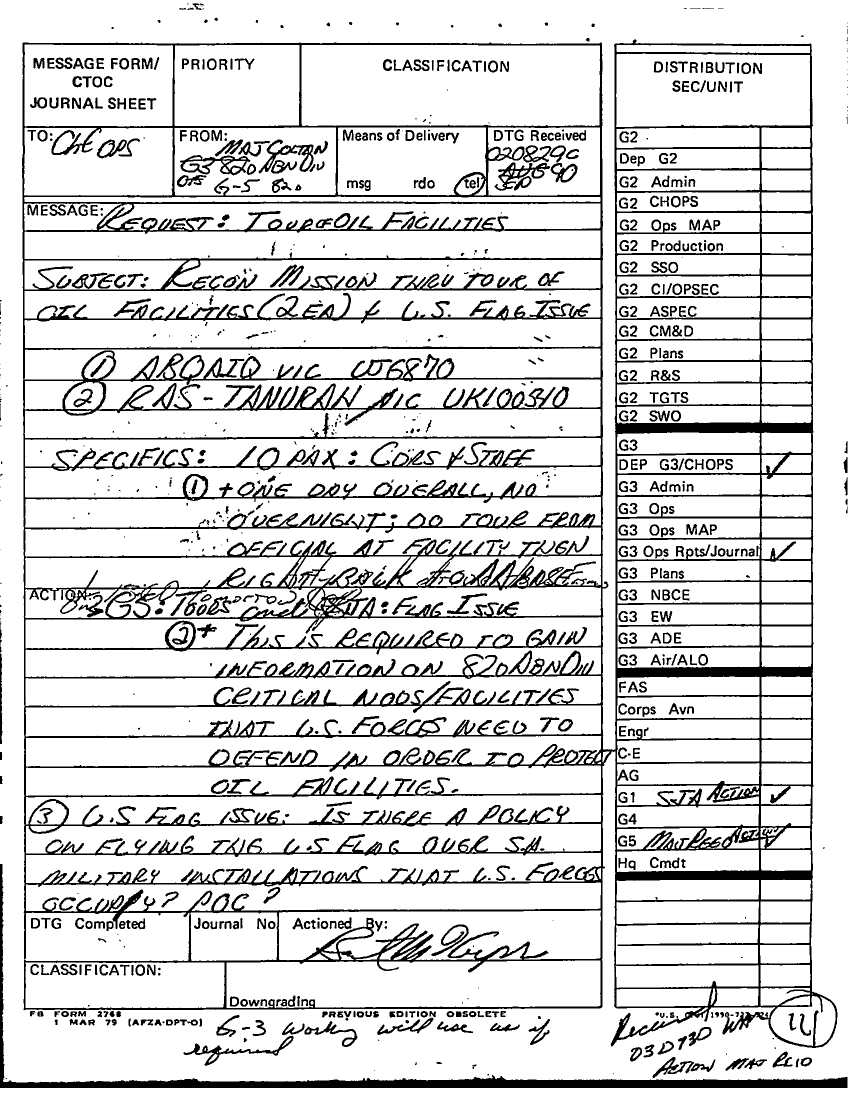 MESSAGE FORM/
CTOC
JOURNAL SHEET
PRIORITY
CLASSIFICATION
DISTRIBUTION
SEC/UNIT
TO: Ch OPS
FROM: MAJ COLTAN
G3 82D ABN DIV
G-5 82D
Means of Delivery
msg rdo tel
DTG Received
020829C
SEP 90
MESSAGE: REQUEST: TOUR OF OIL FACILITIES
SUBJECT: RECON MISSION THRU TOUR OF
OIL FACILITIES (2 EA) & U.S. FLAG ISSUE
① ABQAIQ VIC WJ6870
② RAS-TANURAH VIC UK100510
SPECIFICS: 10 PAX: CDRS & STAFF
① + ONE DAY OVERALL, NO
OVERNIGHT; DO TOUR FROM
OFFICIAL AT FACILITY THEN
RIGHT BACK TO
ACTION: G5: TOURS SJA: FLAG ISSUE
TOMORROW
② + THIS IS REQUIRED TO GAIN
INFORMATION ON 82D ABN DIV
CRITICAL NODS/FACILITIES
THAT U.S. FORCES NEED TO
DEFEND IN ORDER TO PROTECT
OIL FACILITIES.
③ U.S FLAG ISSUE: IS THERE A POLICY
ON FLYING THE U.S FLAG OVER S.A.
MILITARY INSTALLATIONS THAT U.S. FORCES
OCCUPY? POC?
DTG Completed
Journal No
Actioned By:
CLASSIFICATION:
Downgrading
FB FORM 2768
1 MAR 79 (AFZA-DPT-O)
PREVIOUS EDITION OBSOLETE
G-3 working will use us if
required
G2
Dep G2
G2 Admin
G2 CHOPS
G2 Ops MAP
G2 Production
G2 SSO
G2 CI/OPSEC
G2 ASPEC
G2 CM&D
G2 Plans
G2 R&S
G2 TGTS
G2 SWO
G3
DEP G3/CHOPS ✓
G3 Admin
G3 Ops
G3 Ops MAP
G3 Ops Rpts/Journal ✓
G3 Plans
G3 NBCE
G3 EW
G3 ADE
G3 Air/ALO
FAS
Corps Avn
Engr
C-E
AG
G1 SJA ACTION ✓
G4
G5 MAJ REED ACTION ✓
Hq Cmdt
Received
03073D
ACTION MAJ
114